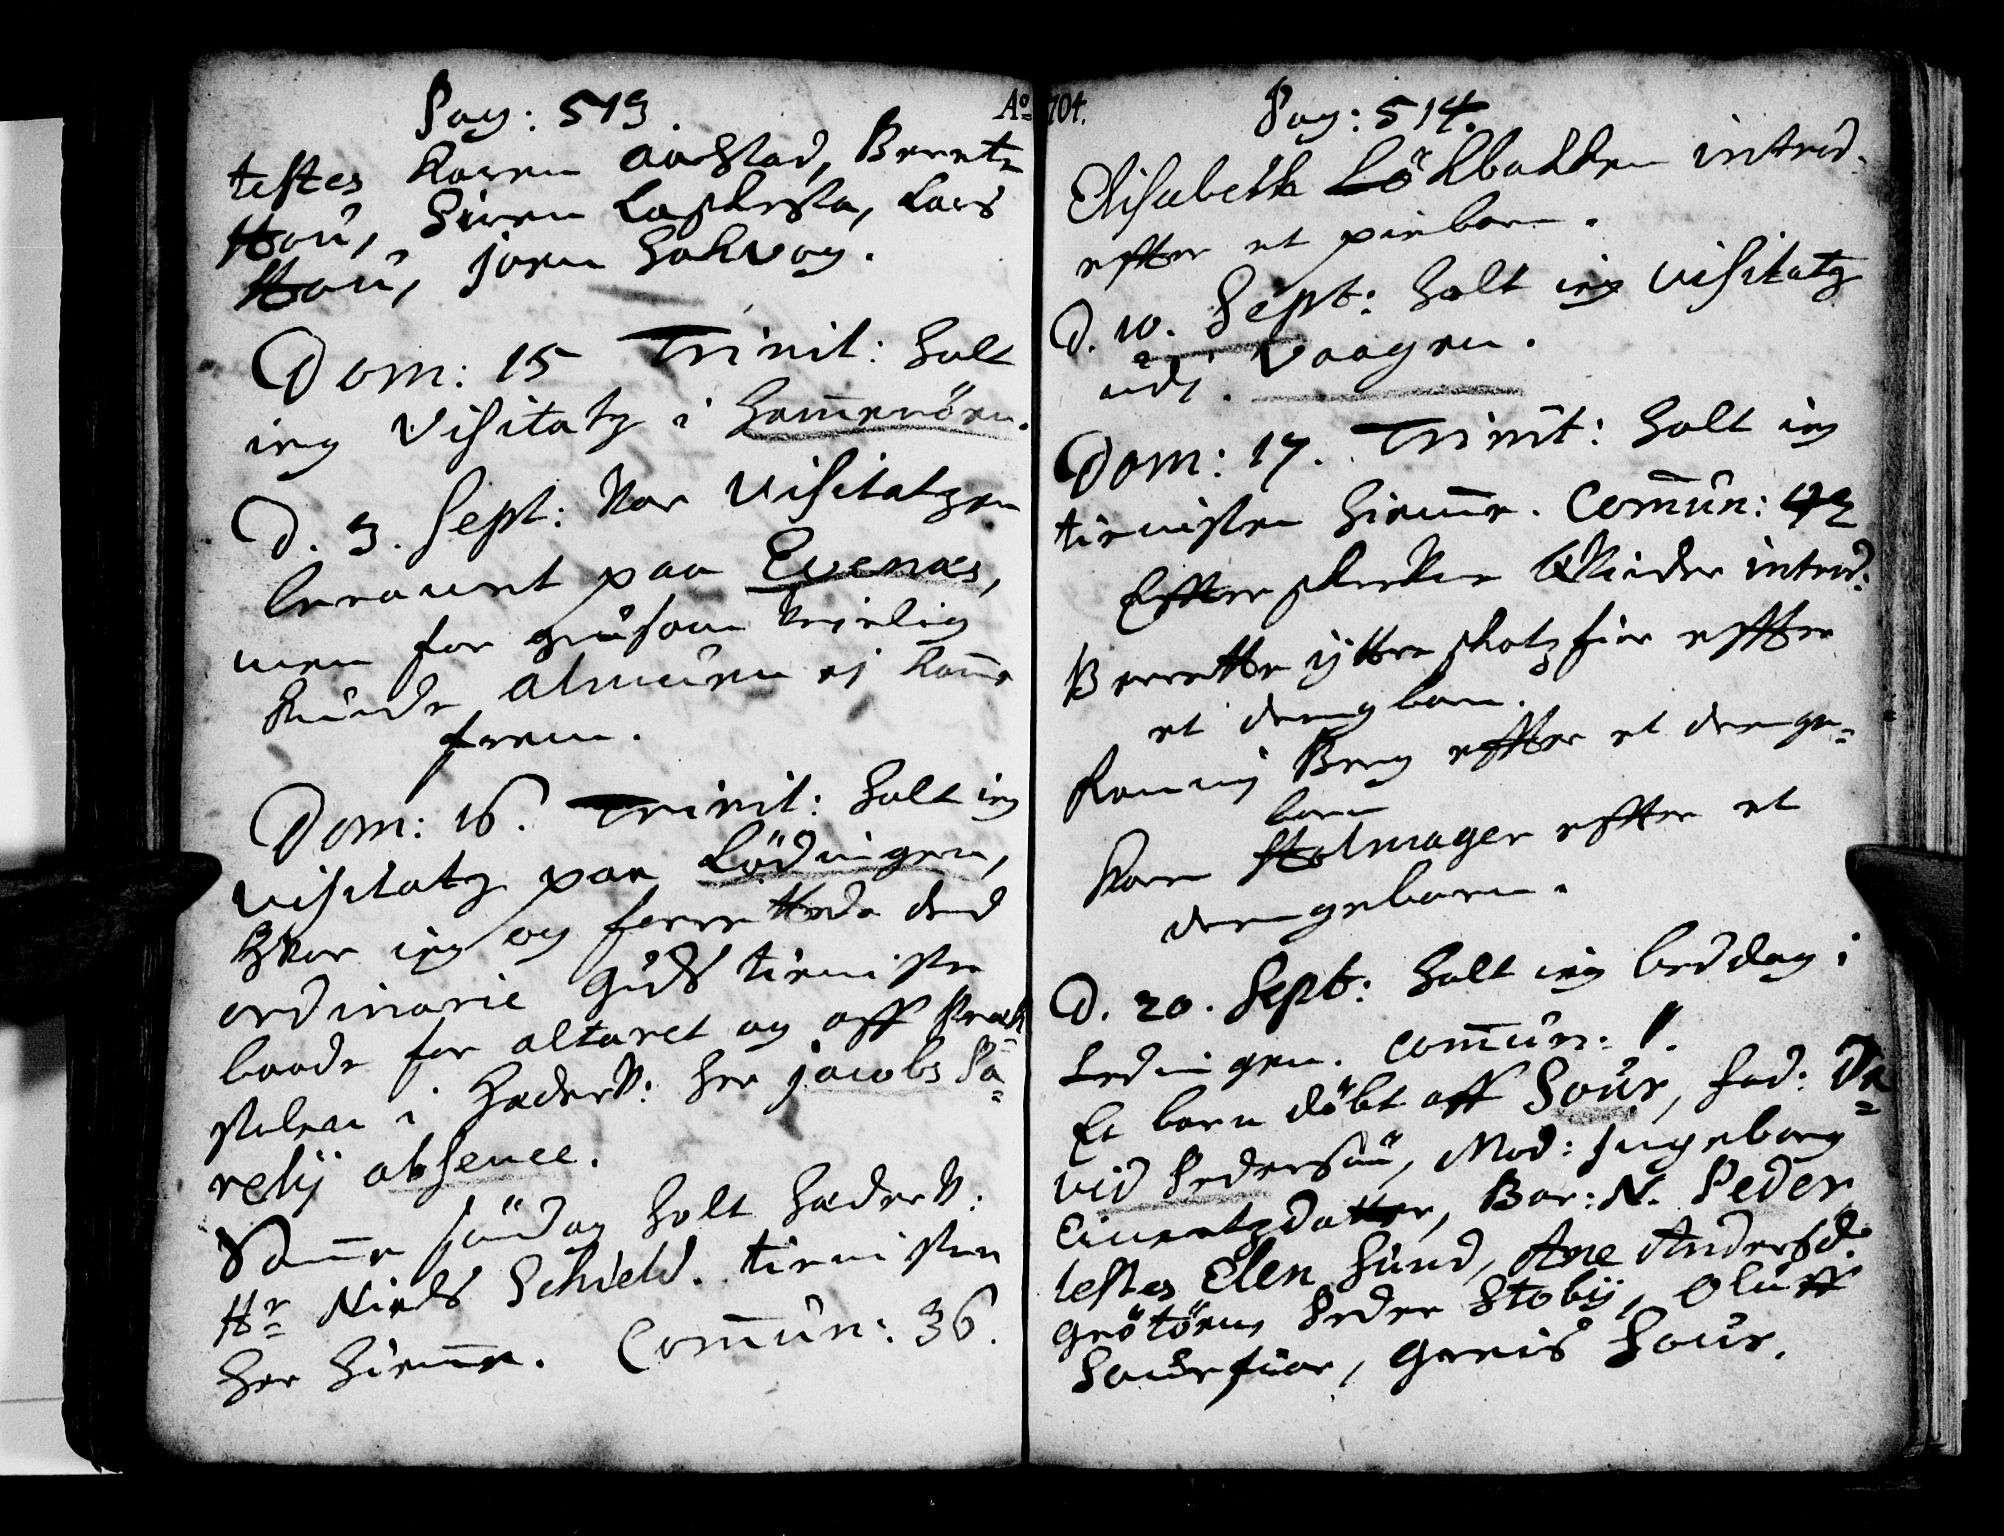 Pag: 513.
testes Karen Aarstad, Berete
Hou, Siren Lapstesta, Lars
Hou, joen Hokvog.
Dom: 15 Trinit: Holt
ieg Visitatz i Hammerøen.
D. 3. Sept: Var Visitatzen
berammet paa Evenæs,
men for grusom veirlig
kunde almuen ej komme
frem.
Dom: 16. Trinit: Holt ieg
visitatz paa Lødingen,
Hvor ieg og forrettede dend
ordinarie Guds tieniste
baade for altaret og aff Præk
stolen i Hæderv: Her jacobs Pa=
relij absence.
Samme søndag holt Hæderv:
Hr Niels Schield. tienisten
her hiemme. Commun: 36.
Ao 1704.
Pag: 514.
Elisabeth Løkbakken introd.
effter et pigebarn.
D. 10. Sept: Holt ieg Visitatz
udj Vaagen.
Dom: 17. Trinit: Holt ieg
tienisten hiemme. Commun: 42
Effterskrevne Qvinder introd:
Berette yttre skotzfiør effter
et drengbarn.
Ranni Berg effter et drenge=
barn
Karn Holmager effter et
drengebarn.
D. 20. Sept: Holt ieg beddag i
Lødingen. Commun: 1.
Et barn døbt aff Sour, Fad: Da=
vid Pedersøn, Mod: Ingeborg
Einertzdatter, Bar: N. Peder
testes Elen Sund, Ane Andersd.
Grøtøen, Peder Stobÿ, Oluff
Sourfiør, Greis Sour.